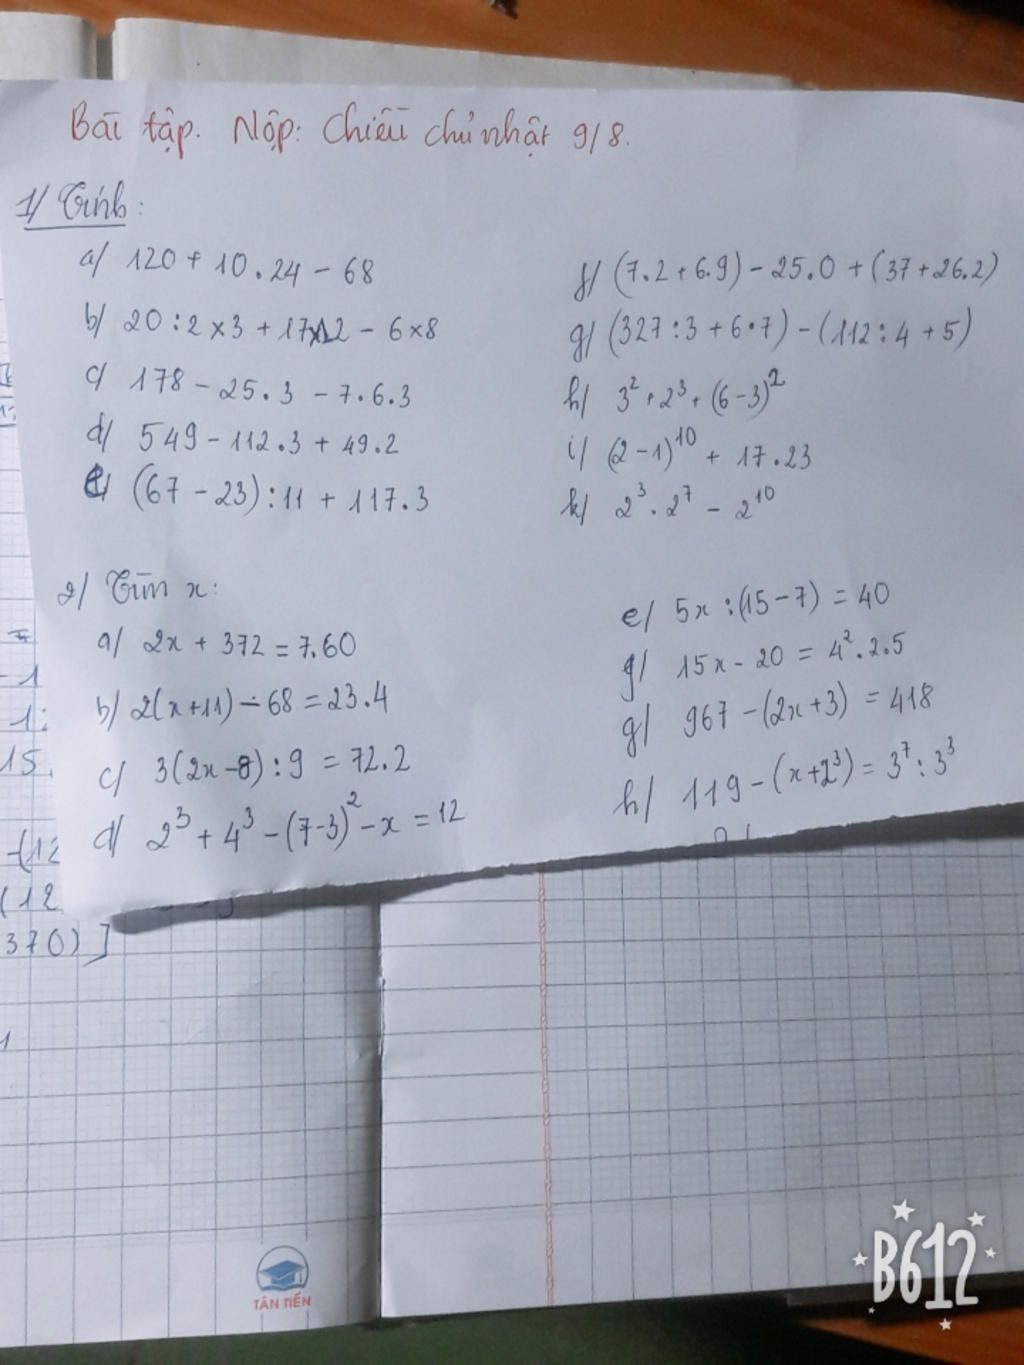 Bài tập. Nộp: Chiều chủ nhật 9/8.
1/ Tính:
a/ 120 + 10.24 - 68
b/ 20 : 2 x 3 + 17 x 12 - 6 x 8
c/ 178 - 25.3 - 7.6.3
d/ 549 - 112.3 + 49.2
e/ (67 - 23) : 11 + 117.3
f/ (7.2 + 6.9) - 25.0 + (37 + 26.2)
g/ (327 : 3 + 6.7) - (112 : 4 + 5)
h/ 3² + 2³ + (6 - 3)²
i/ (2 - 1)¹⁰ + 17.23
k/ 2³ . 2⁷ - 2¹⁰
2/ Tìm x:
a/ 2x + 372 = 7.60
b/ 2(x + 11) - 68 = 23.4
c/ 3(2x - 8) : 9 = 72.2
d/ 2³ + 4³ - (7 - 3)² - x = 12
e/ 5x : (15 - 7) = 40
g/ 15x - 20 = 4² . 2.5
g/ 967 - (2x + 3) = 418
h/ 119 - (x + 2³) = 3⁷ : 3³
- 1
15.
(12
370) ]
TÂN TIẾN
B612